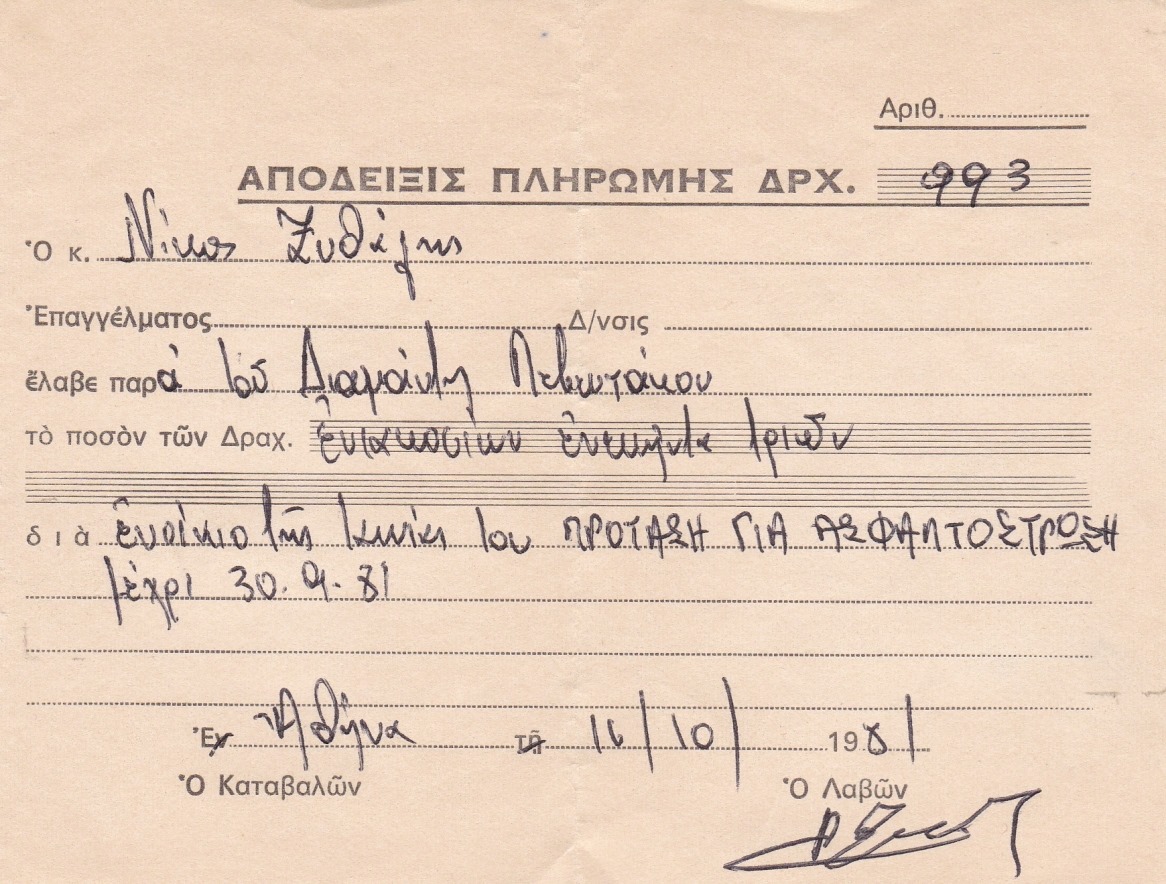 Ἀριθ.
ΑΠΟΔΕΙΞΙΣ ΠΛΗΡΩΜΗΣ ΔΡΧ. 993
Ὁ κ. Νίκος
Ἐπαγγέλματος Δ/νσις
ἔλαβε παρά τοῦ Διαμάντη
τὸ ποσὸν τῶν Δραχ. ἐνιακοσίων ἐνενήντα τριῶν
διὰ ἐνοίκιο τῆς του ΠΡΟΤΑΣΗ ΓΙΑ ΑΣΦΑΛΤΟΣΤΡΩΣΗ
μέχρι 30.9.81
Ἐν Ἀθήνα τῇ 16/10/ 1981
Ὁ Καταβαλῶν Ὁ Λαβῶν